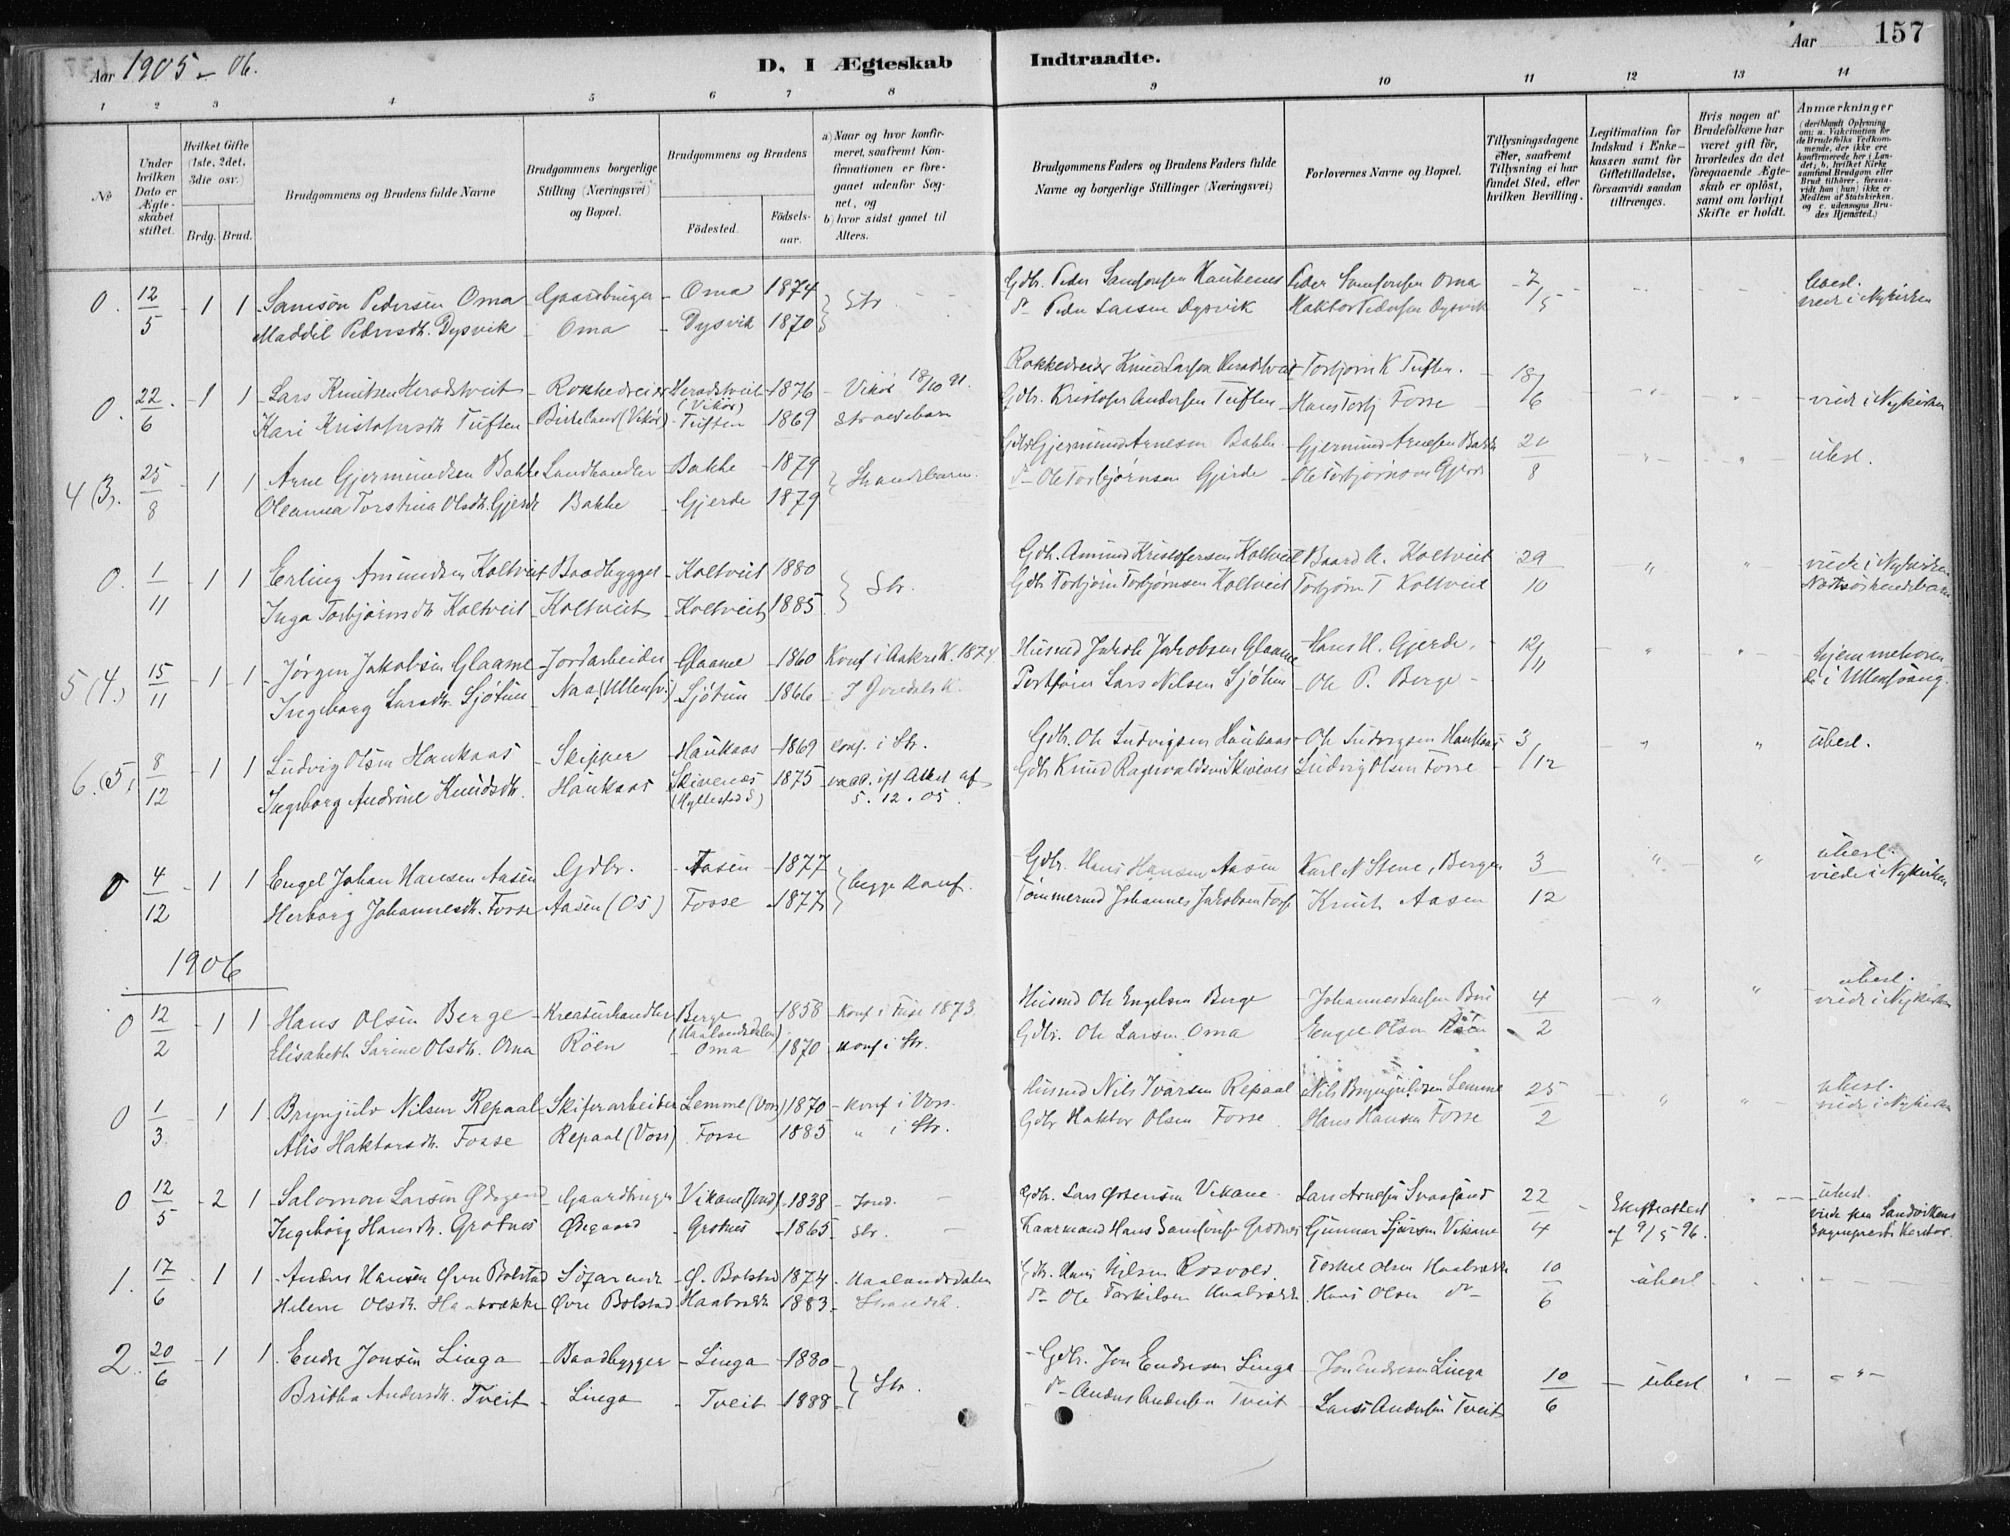 Aar 1905 - 06.
D, I Ægteskab Indtraadte.
Aar
157
1 2 3 4 5 6 7 8 9 10 11 12 13 14
No
Under hvilken Dato er Ægteskabet stiftet.
Hvilket Gifte (1ste, 2det, 3die osv.)
Brdg. Brud.
Brudgommens og Brudens fulde Navne
Brudgommens borgerlige Stilling (Næringsvei) og Bopæl.
Brudgommens og Brudens
Fødested.
Fødselsaar.
a) Naar og hvor konfirmeret, saafremt Konfirmationen er foregaaet udenfor Sognet, og
b) hvor sidst gaaet til Alters.
Brudgommens Faders og Brudens Faders fulde Navne og borgerlige Stillinger (Næringsvei)
Forlovernes Navne og Bopæl.
Tillysningsdagene eller, saafremt Tillysning ei har fundet Sted, efter hvilken Bevilling.
Legitimation for Indskud i Enkekassen samt for Giftetilladelse, forsaavidt saadan tiltrænges.
Hvis nogen af Brudefolkene har været gift før, hvorledes da det foregaaende Ægteskab er opløst, samt om lovligt Skifte er holdt.
Anmærkninger (deriblandt Oplysning om: a. Vakcination for de Brudefolks Vedkommende, der ikke ere konfirmerede her i Landet; b, hvilket Kirkesamfund Brudgom eller Brud tilhører, forsaavidt han (hun) ikke er Medlem af Statskirken, og c. udensogns Brudes Hjemsted.)
0. 12/5 - 1 1 Samson Pedersen Oma Gaardbruger - Oma 1874 } Str. Gdbr. Peder Samsonsen Haukenes Peder Samsonsen Oma 7/5 ubesl.
Maddil Pedersdt. Dysvik - Oma - Dysvik 1870 do Peder Larsen Dysvik Haktor Pedersen Dysvik viede i Nykirken
0. 22/6 - 1 1 Lars Knutsen Heradstveit - Rokkedreier Heradstveit (Vikör) 1876 - Vikör 18/10 91. Rokkedreier Knud Larsen Heradstveit Torbjørn K Tuften. 18/6 " " viede i Nykirken
Kari Kristofersdt. Tuften - Birkeland (Vikör) - Tuften 1869 Strandebarm Gdbr. Kristofer Andersen Tuften - Hans Torbj Fosse
4 (3). 25/8 - 1 1 Arne Gjermundsen Bakke Landhandler - Bakke - 1879 } Strandebarm. Gdbr Gjermund Arnesen Bakke - Gjermund Arnesen Bakke 20/8 " " ubesl.
Oleanna Torstina Olsdt. Gjerde Bakke - Gjerde 1879 do Ole Torbjørnsen Gjerde Ole Torbjørnsen Gjerde
0. 1/11 - 1 1 Erling Amundsen Koltveit Baadbygger - Koltveit 1880 } Str. Gdbr. Amund Kristofersen Koltveit Baard A. Koltveit 29/10 " " viede i Nykirken
Inga Torbjørnsdt. Koltveit - Koltveit - Koltveit 1885 Gdbr Torbjørn Torbjørnsen Koltveit Torbjørn T Koltveit Næstsøskendebarn
5 (4.) 15/11 - 1 - 1 Jørgen Jakobsen Glaame - Jordarbeider - Glaame - 1860 Konf i Aakre K. 1874 Husmd Jakob Jakobsen Glaame - Hans H. Gjerde. 12/11 " " hjemmehørende
Ingeborg Larsdt. Sjötun - Naa (Ullensv.) - Sjötun - 1866 - I Jondals K. Larsen Lars Nilsen Sjötun - Ole P. Berge - i Ullensvang.
6. (5. 8/12 - 1 1 Ludvig Olsen Haukaas - Skipper - Haukaas - 1869 konf. i Str. Gdbr. Ole Ludvigsen Haukaas - Ole Ludvigsen Haukaas 3/12 " " ubesl.
Ingeborg Andrine Knudsdt. Haukaas Skivenes (Hyllestad S) 1875 - vacc. ifl Attest af 5.12.05. Gdbr Knud Ragnvaldsen Skivenes Ludvig Olsen Fosse
0 4/12 - 1 1 Engel Johan Hansen Aasen Gdbr. - Aasen - 1877 } begge konf. Gdbr. Hans Hansen Aasen Karl N Stene, Bergen 3/12 " " ubesl.
Herborg Johannesdt. Fosse Aasen (Os) - Fosse 1877 Tømmermd Johannes Jakobsen Fosse Knut Aasen viede i Nykirken
1906
0 12/2 - 1 1 Hans Olsen Berge - Kreaturhandler Berge (Haalandsdalen) 1858 - konf i Fuse 1873. Husmd Ole Engelsen Berge - Johannes Larsen 4/2 " " ubesl. viede i Nykirken
Elisabeth Sarine Olsdt. Oma Röen - Oma 1870 konf i Str. Gdbr. Ole Larsen Oma Engel Olsen
0 1/3 - 1 1 Brynjulv Nilsen Repaal - Skiferarbeider Lemme (Voss) 1870 - konf i Voss. Husmd Nils Ivarsen Repaal Nils Brynjulvsen Lemme 25/2 " " ubesl.
Alis Haktorsdt. Fosse Repaal (Voss) - Fosse 1885 " i Str. Gdbr Haktor Olsen Fosse Hans Hansen Fosse viede i Nykirken
0 12/5 - 2 1 Salomon Larsen Ødegaard Gaardbruger Vikane (Jond) - 1838 - Jond. Gdbr. Lars Østensen Vikane. Lars Arnesen 22/4 Skifteattest af 9/5 96. " ubesl.
Ingeborg Hansdt. Grotnes Ødegaard - Grotnes - 1865 - Str. Kaarmand Hans Samsonsen Grotnes Gunnar Sjursen Vikane viede paa Sandvikens Sogneprests Kontor.
1. 17/6 - 1 1 Anders Hansen Øvre Bolstad Søfarende - Ø. Bolstad 1874 - Haalandsdalen Gdbr. Hans Nilsen Rosvold. Torkel Olsen Haabrække 10/6 ubesl
Helene Olsdt. Haabrække Øvre Bolstad Haabrække 1883 - Strandeb. do Ole Torkilsen Haabrække Hans Olsen do
2. 20/6 - 1 1. Endre Jonsen Linga - Baadbygger - Linga - 1880 } Str. Gdbr. Jon Endresen Linga - Jon Endresen Linga 10/6 - ubesl " "
Britha Andersdt. Tveit - Linga - Tveit - 1888 do - Anders Andersen Tveit - Lars Andersen Tveit